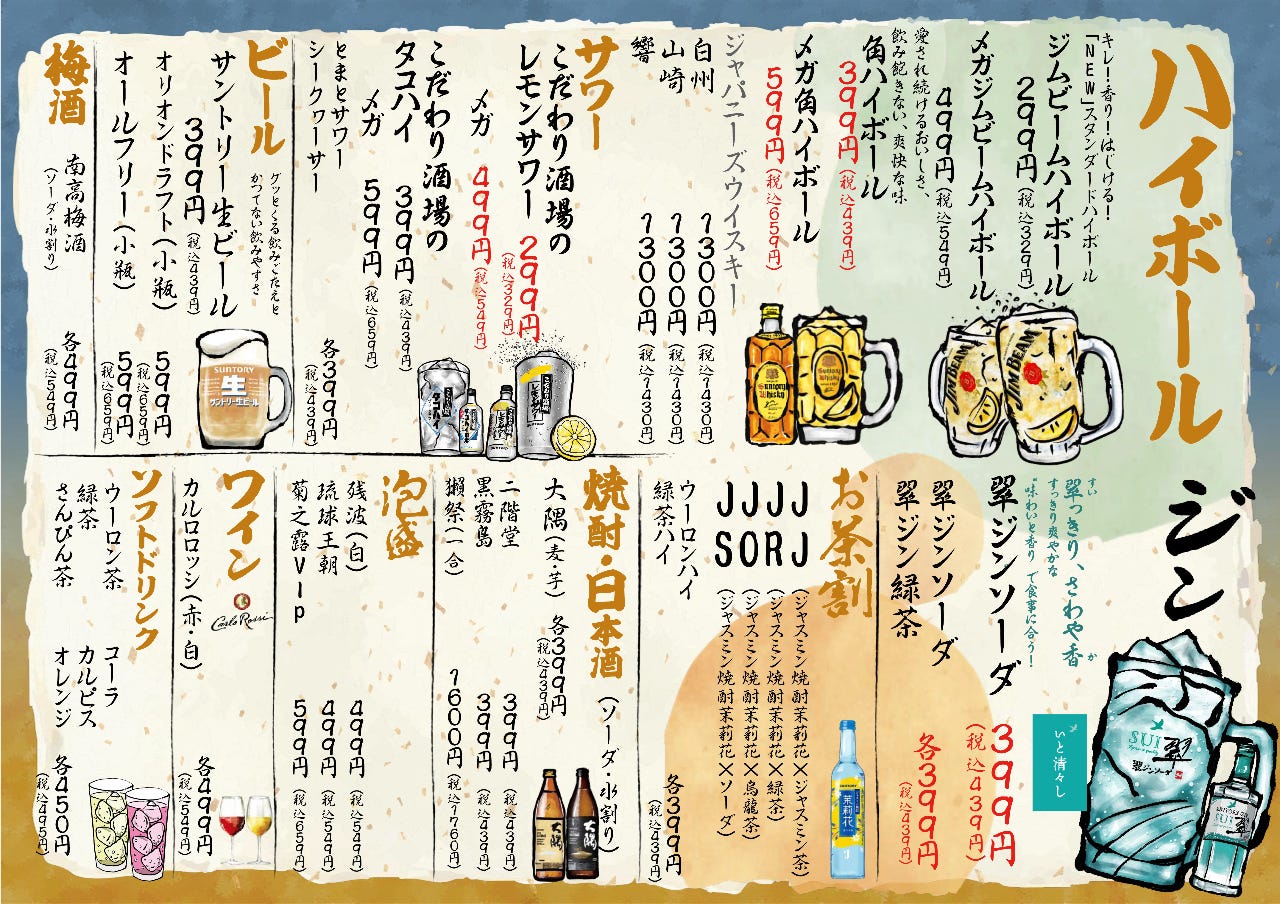 ハイボール
キレ！香り！はじける！
「NEW」スタンダードハイボール
ジムビームハイボール
299円(税込329円)
メガジムビームハイボール
499円(税込549円)
愛され続けるおいしさ、
飲み飽きない、爽快な味
角ハイボール
399円(税込439円)
メガ角ハイボール
599円(税込659円)
ジャパニーズウイスキー
白州 1300円(税込1430円)
山崎 1300円(税込1430円)
響 1300円(税込1430円)
JIM BEAM
JIM BEAM
SUNTORY
Whisky
サワー
こだわり酒場の
レモンサワー 299円
(税込329円)
メガ 499円(税込549円)
こだわり酒場の
タコハイ 399円(税込439円)
メガ 599円(税込659円)
とまとサワー
シークワーサー
各399円
(税込439円)
タコハイ
ビール
グッとくる飲みごたえと
かつてない飲みやすさ
サントリー生ビール
399円(税込439円)
オリオンドラフト(小瓶) 599円
(税込659円)
オールフリー(小瓶) 599円
(税込659円)
SUNTORY
生
サントリー生ビール
梅酒
南高梅酒
(ソーダ・水割り)
各499円
(税込549円)
ジン
翠っきり、さわや香
すい
か
すっきり爽やかな
"味わいと香り"で食事に合う！
翠ジンソーダ
399円
(税込439円)
翠ジンソーダ
翠ジン緑茶
各399円
(税込439円)
いと清々し
SUI
翠
翠ジンソーダ
SUI
翠
お茶割
JJ (ジャスミン焼酎茉莉花×ジャスミン茶)
JR (ジャスミン焼酎茉莉花×緑茶)
JO (ジャスミン焼酎茉莉花×烏龍茶)
JS (ジャスミン焼酎茉莉花×ソーダ)
ウーロンハイ
緑茶ハイ
各399円
(税込439円)
茉莉花
焼酎・日本酒
(ソーダ・水割り)
大隅(麦・芋) 各399円
(税込439円)
二階堂 399円(税込439円)
黒霧島 399円(税込439円)
獺祭(一合) 1600円(税込1760円)
大隅
大隅
泡盛
残波(白) 499円(税込549円)
琉球王朝 499円(税込549円)
菊之露VIP 599円(税込659円)
ワイン
Carlo Rossi
カルロロッシ(赤・白)
各499円
(税込549円)
ソフトドリンク
ウーロン茶 コーラ
緑茶 カルピス
さんぴん茶 オレンジ
各450円
(税込495円)